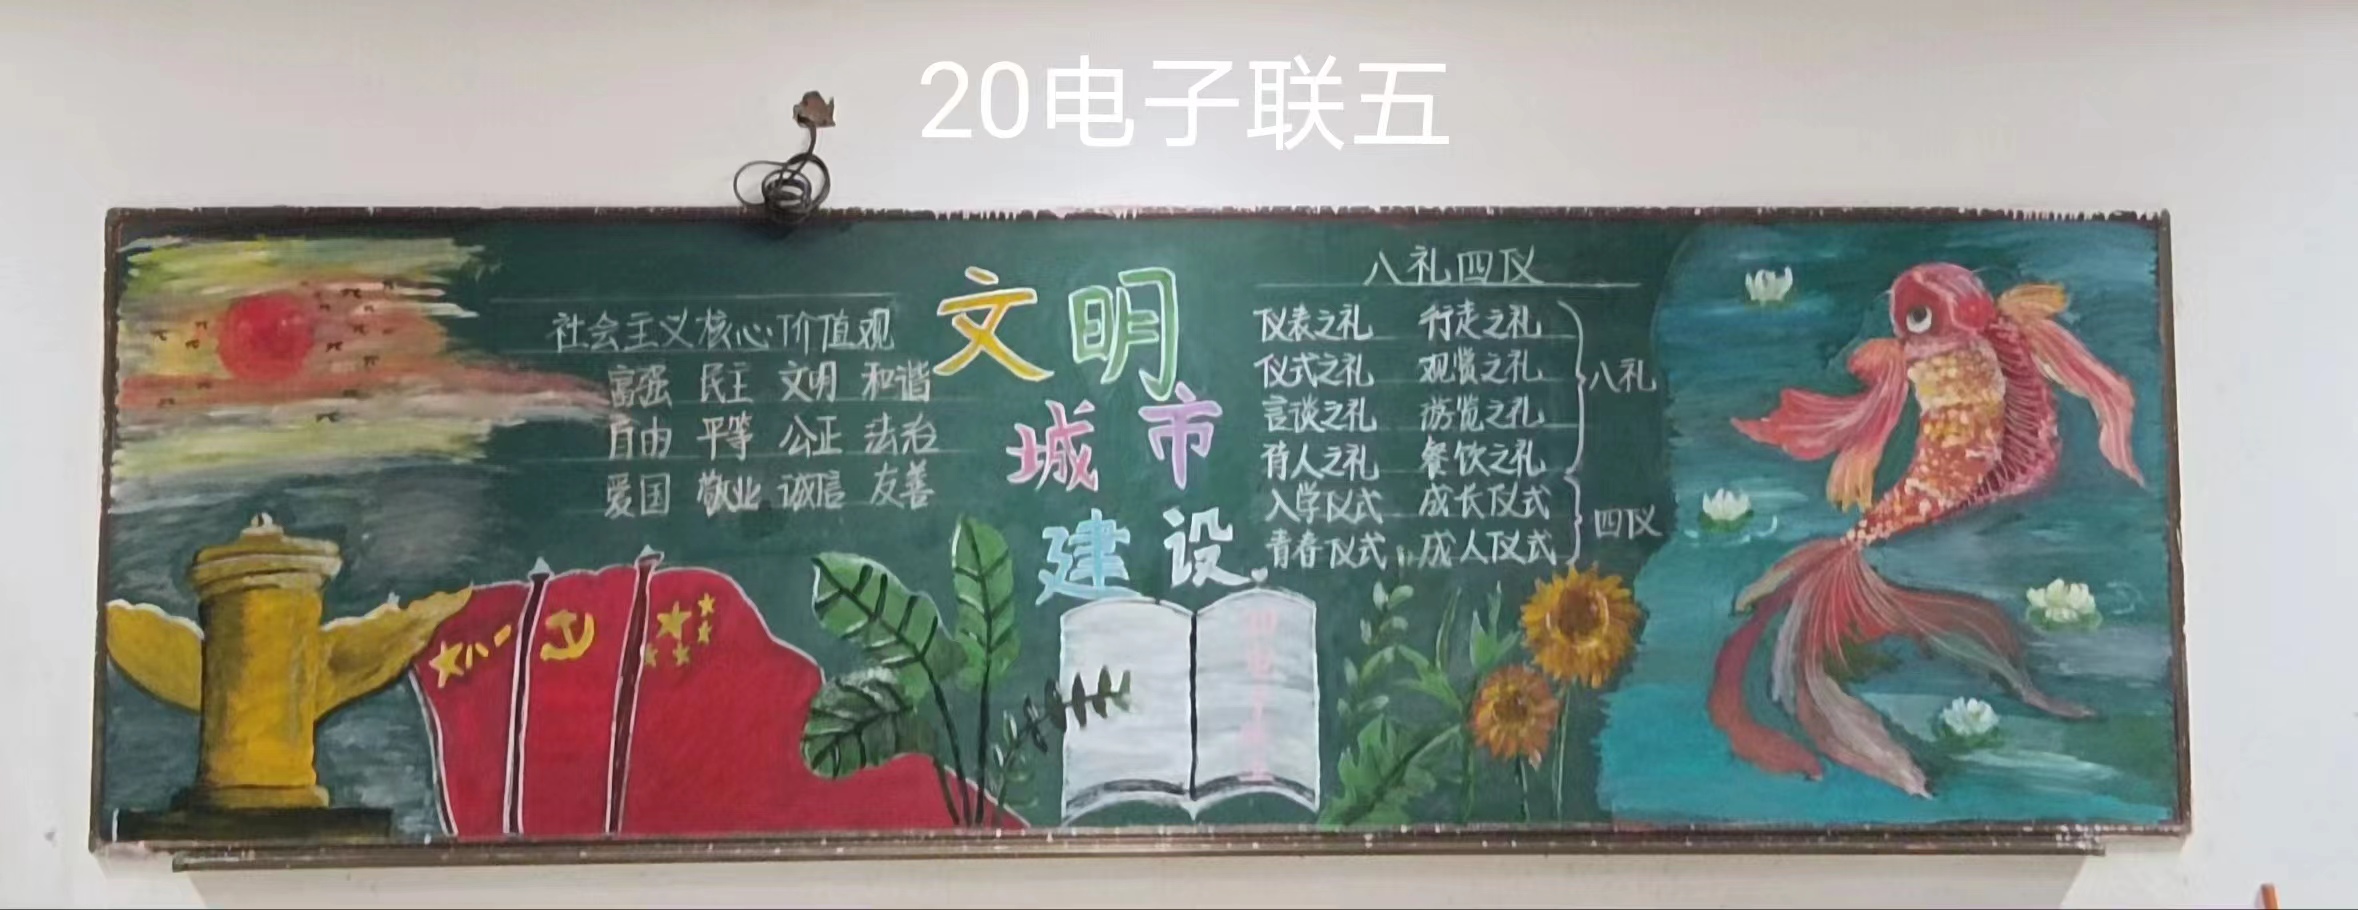 20电子联五
社会主义核心价值观
富强 民主 文明 和谐
自由 平等 公正 法治
爱国 敬业 诚信 友善
八一
文明
城市
建设
八礼四仪
仪表之礼 行走之礼
仪式之礼 观赏之礼
言谈之礼 游览之礼
待人之礼 餐饮之礼
八礼
入学仪式 成长仪式
青春仪式 成人仪式
四仪